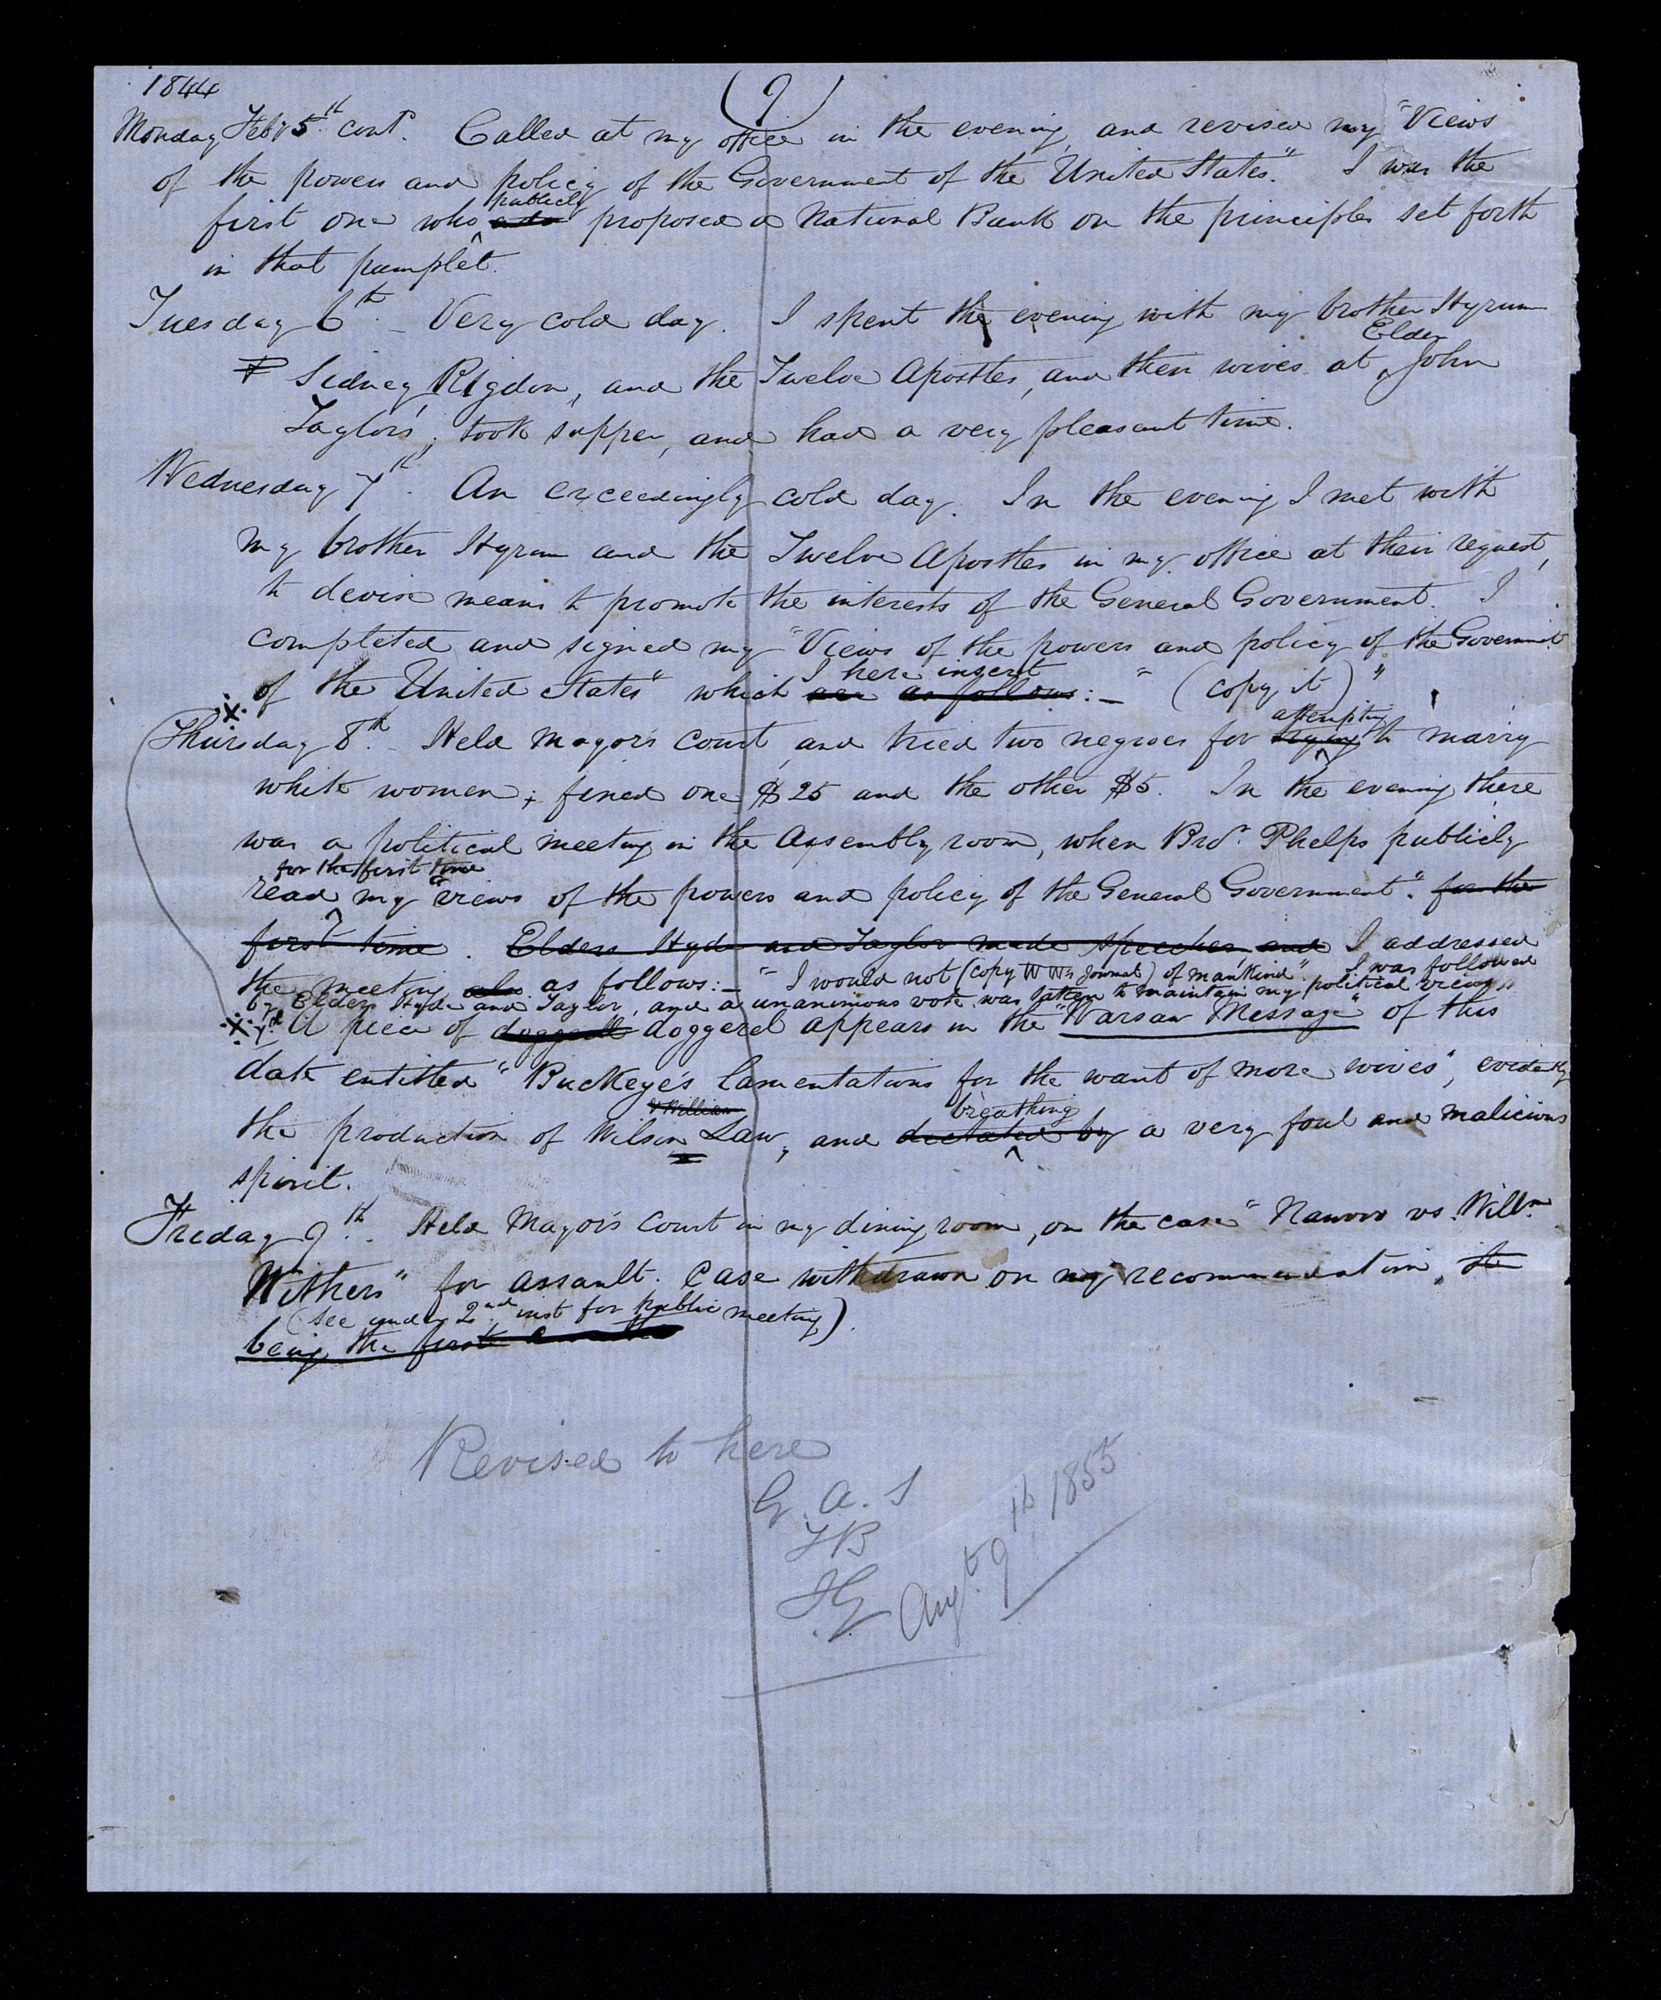 1844
(9)
Monday Feby 5th cont. Called at my office in the evening, and revised my "Views
of the powers and policy of the Government of the United States." I was the
publicly
first one who proposed a National Bank on the principles set forth
in that pamplet.
Tuesday 6th – Very cold day. I spent the evening with my brother Hyrum
Elder
Sidney Rigdon, and the Twelve Apostles, and their wives at John
Taylor's; took supper, and had a very pleasant time.
Wednesday 7th. An exceedingly cold day. In the evening I met with
my brother Hyrum and the Twelve Apostles in my office at their request,
to devise means to promote the interests of the General Government. I
completed and signed my "Views of the powers and policy of the Governmt
I here insert
of the United States" which as follows:– " (copy it)"
attempting
Thursday 8th– Held Mayor's court, and tried two negroes for trying to marry
white women; fined one $25 and the other $5. In the evening there
was a political meeting in the assembly room, when Bro. Phelps publicly
for the first time
read my "views of the powers and policy of the General Government". for the
first time. Elders Hyde and Taylor made speeches, and I addressed
the meeting also as follows:– "I would not (copy W W's Journal) of mankind". I was followed
by Elders Hyde and Taylor, and a unanimous vote was taken to maintain my political views
7th A piece of doggerell doggerel appears in the "Warsaw Message" of this
date entitled "Buckeye's lamentations for the want of more wives", evidently
& William
breathing
the production of Wilson Law, and dictated by a very foul and malicious
spirit.
Friday 9th.– Held Mayor's court in my dining room, on the case "Nauvoo vs. Willm
Withers" for assault. Case withdrawn on my recommendation, it
(see under 2nd inst for public meeting).
being the first
Revised to here
G. A. S
TB
Augt. 9th 1855